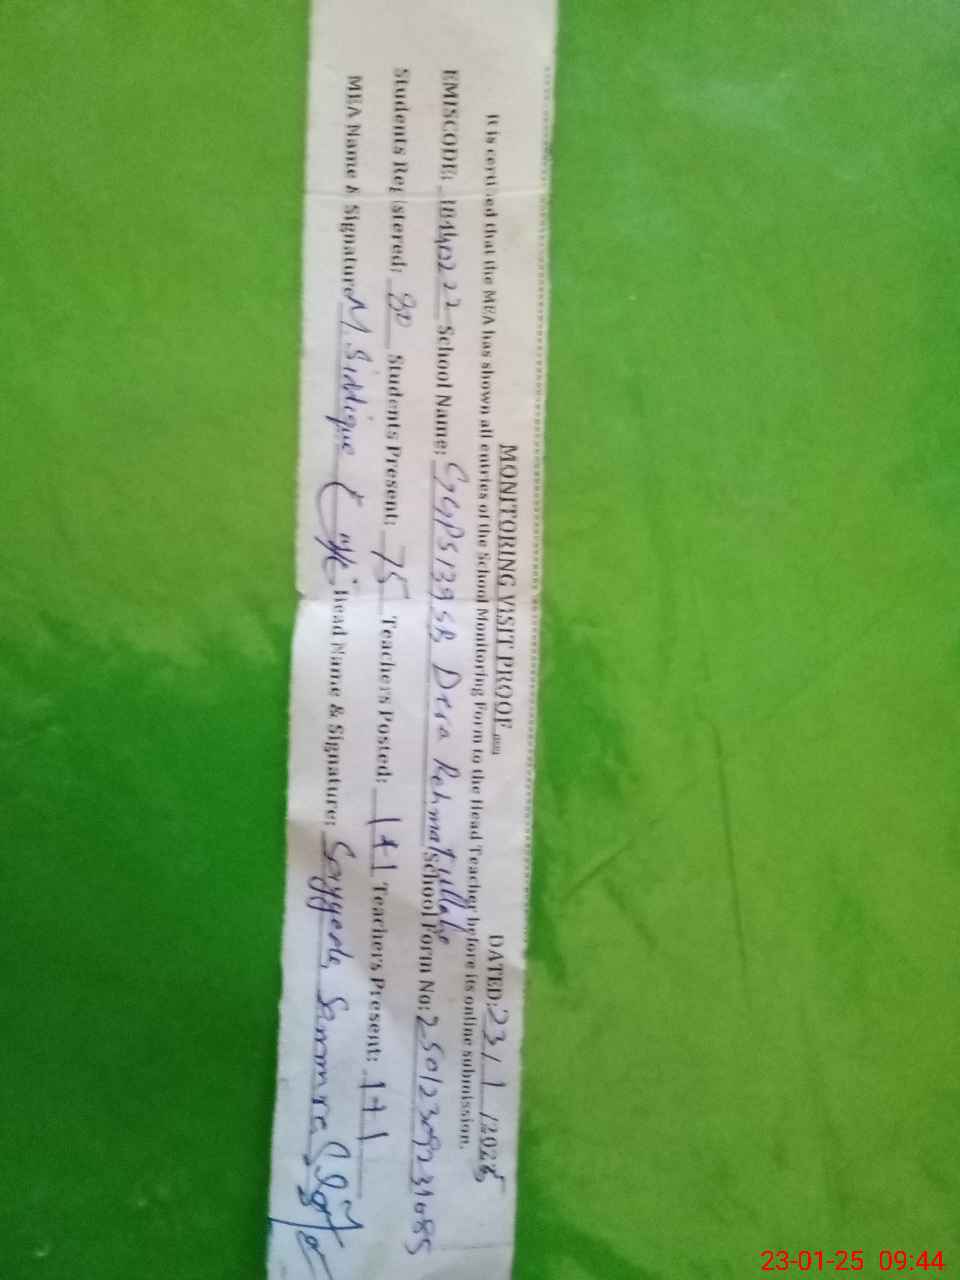 MONITORING VISIT PROOF DATED: 23/1/2025
It is certified that the MEA has shown all entries of the School Monitoring Form to the Head Teacher before its online submission.
EMISCODE: School Name: GGPS 139 SB Dera Rehmatullah School Form No:
Students Registered: 80 Students Present: 75 Teachers Posted: 1+1 Teachers Present: 1+1
MEA Name & Signature M. Siddique Head Name & Signature:
23-01-25 09:44